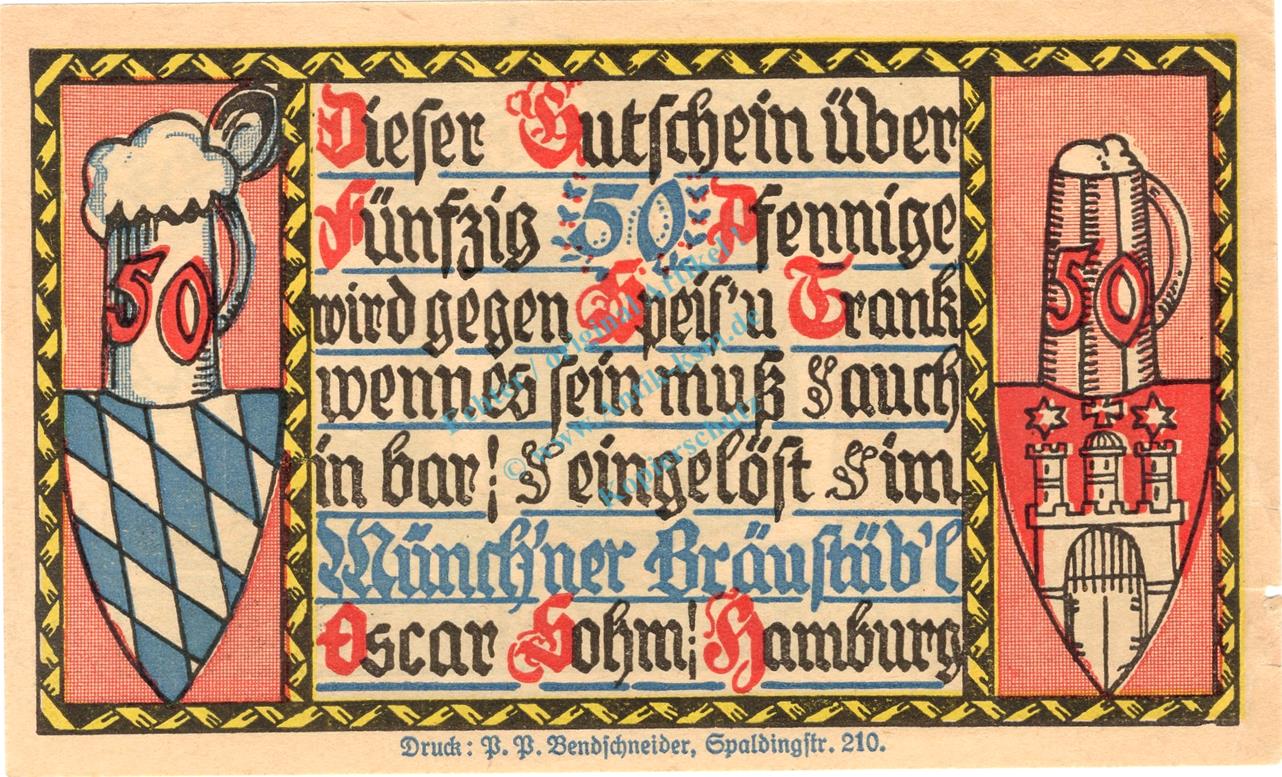 Dieser Gutschein über
Fünfzig 50 Pfennige
wird gegen Speis' u Trank
wenn es sein muß auch
in bar! eingelöst im
Münch'ner Bräustüb'l
Oscar Sohm! Hamburg
50
50
Druck: P. P. Bendschneider, Spaldingstr. 210.
Fehler / original Artikel
© www.Antik-Ksn.de
Kopierschutz